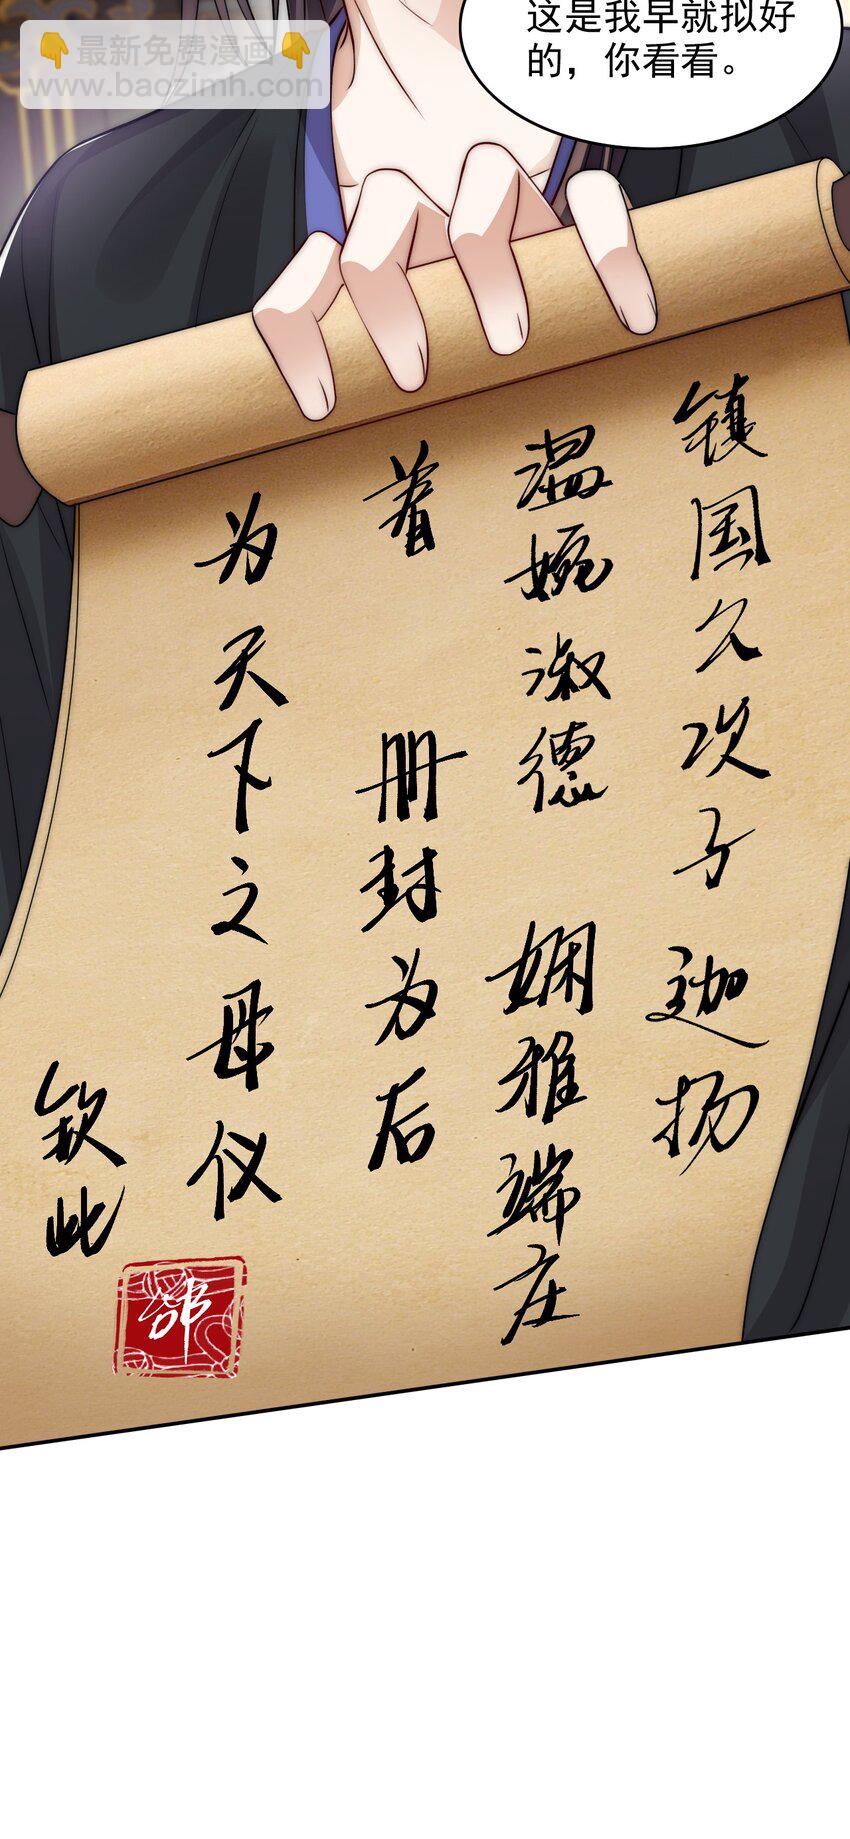 最新免费漫画
www.baozimh.com
这是我早就拟好
的，你看看。
镇国久次子迦扬
温婉淑德 娴雅端庄
着 册封为后
为天下之母仪
钦此